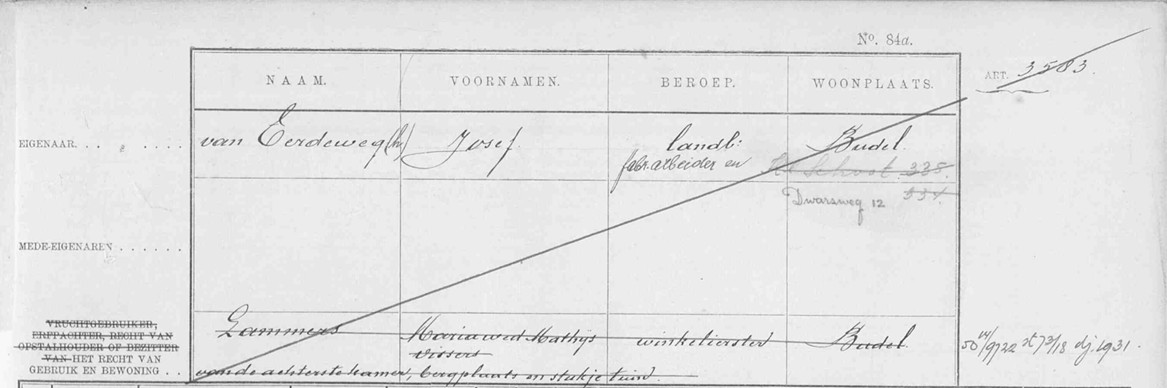 No. 84a.
NAAM. VOORNAMEN. BEROEP. WOONPLAATS.
ART. 3583.
EIGENAAR. van Eerdeweg(h) Josef landb: Budel
fabr. arbeider en Schoot 335.
Dwarsweg 12 334.
MEDE-EIGENAREN
VRUCHTGEBRUIKER,
ERFPACHTER, RECHT VAN
OPSTALHOUDER OF BEZITTER
VAN HET RECHT VAN
GEBRUIK EN BEWONING
Lammers Maria wed Mathijs winkelierster Budel
Vissers
van de achterste kamer, bergplaats en stukje tuin.
dj. 1931.